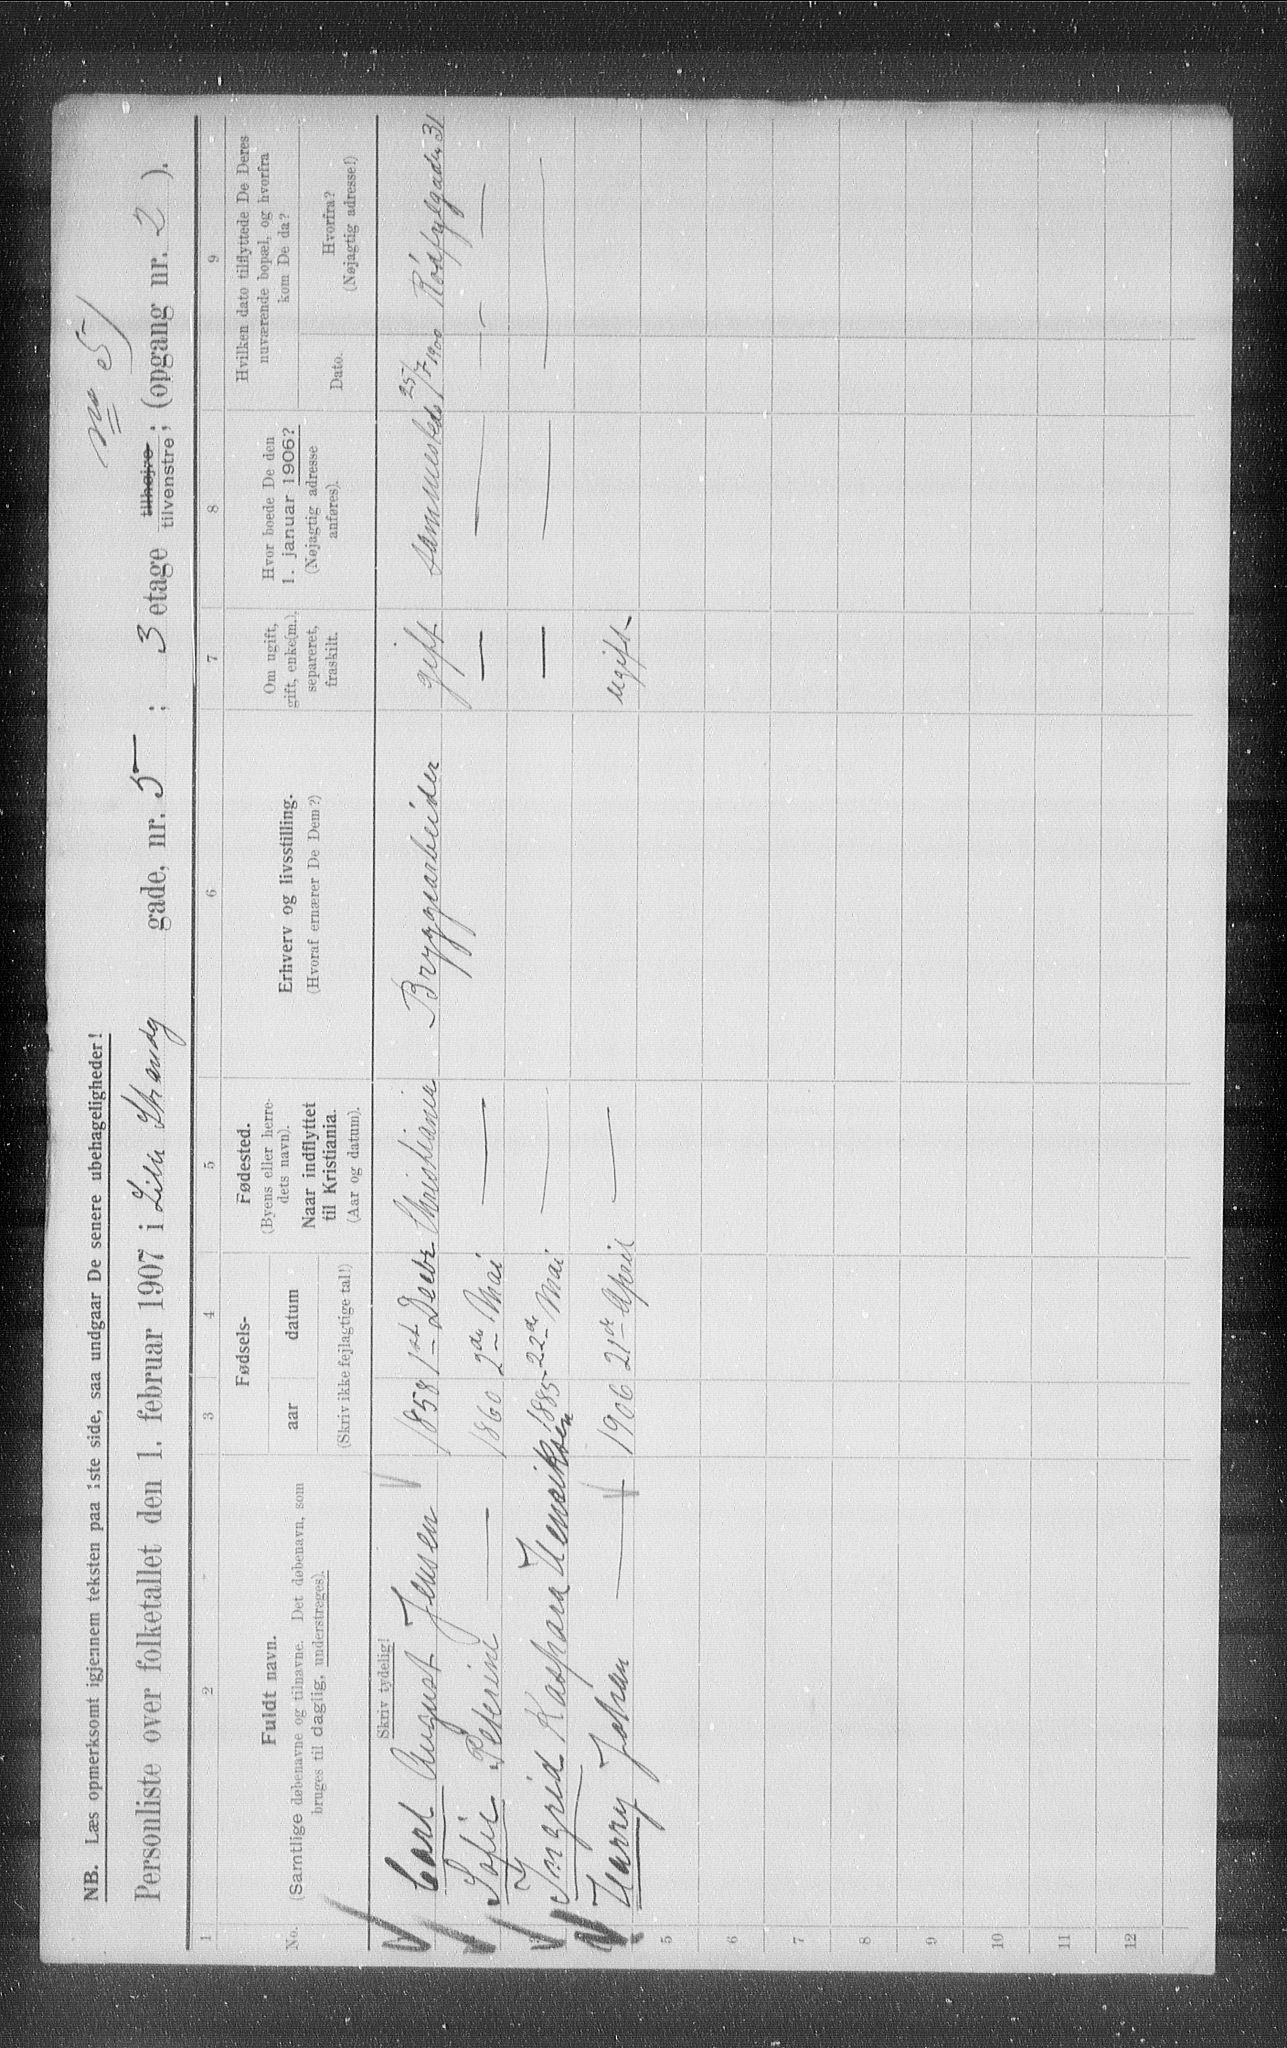 No 5
NB. Læs opmerksomt igjennem teksten paa 1ste side, saa undgaar De senere ubehageligheder!
Personliste over folketallet den 1. februar 1907 i Lille Strand gade, nr. 5 ; 3 etage tilhøjre tilvenstre; (opgang nr. 2 ).
1 2 3 4 5 6 7 8 9
No.
Fuldt navn.
(Samtlige døbenavne og tilnavne. Det døbenavn, som
bruges til daglig, understreges).
Fødsels-
aar datum
(Skriv ikke fejlagtige tal!)
Fødested.
(Byens eller herre-
dets navn).
Naar indflyttet
til Kristiania.
(Aar og datum).
Erhverv og livsstilling.
(Hvoraf ernærer De Dem?)
Om ugift,
gift, enke(m.),
separeret,
fraskilt.
Hvor boede De den
1. januar 1906?
(Nøjagtig adresse
anføres).
Hvilken dato tilflyttede De Deres
nuværende bopæl, og hvorfra
kom De da?
Dato.
Hvorfra?
(Nøjagtig adresse!)
Skriv tydelig!
Carl August Jensen 1858 1ste Decbr Christiania Bryggearbeider gift sammesteds 25/7 1900 Rødfylgaden 31
Sofie Petrine — 1860 2de Mai — — — — —
3 Ingrid Kaspara Henriksen 1885 22de Mai — — — — —
Harry Johan — 1906 21de April — ugift
5
6
7
8
9
10
11
12